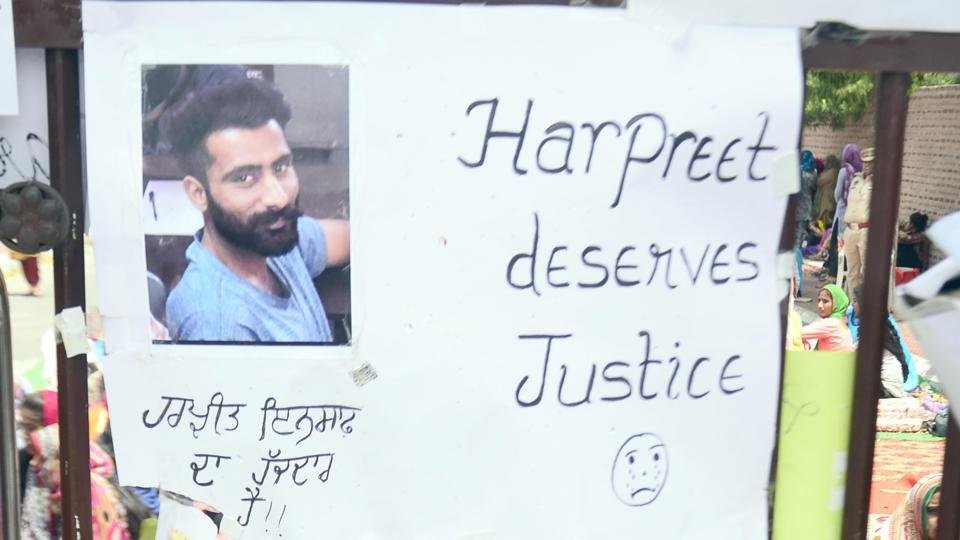 Harpreet
deserves
Justice
ਹਰਪ੍ਰੀਤ ਇਨਸਾਫ਼
ਦਾ ਹੱਕਦਾਰ
ਹੈ!!